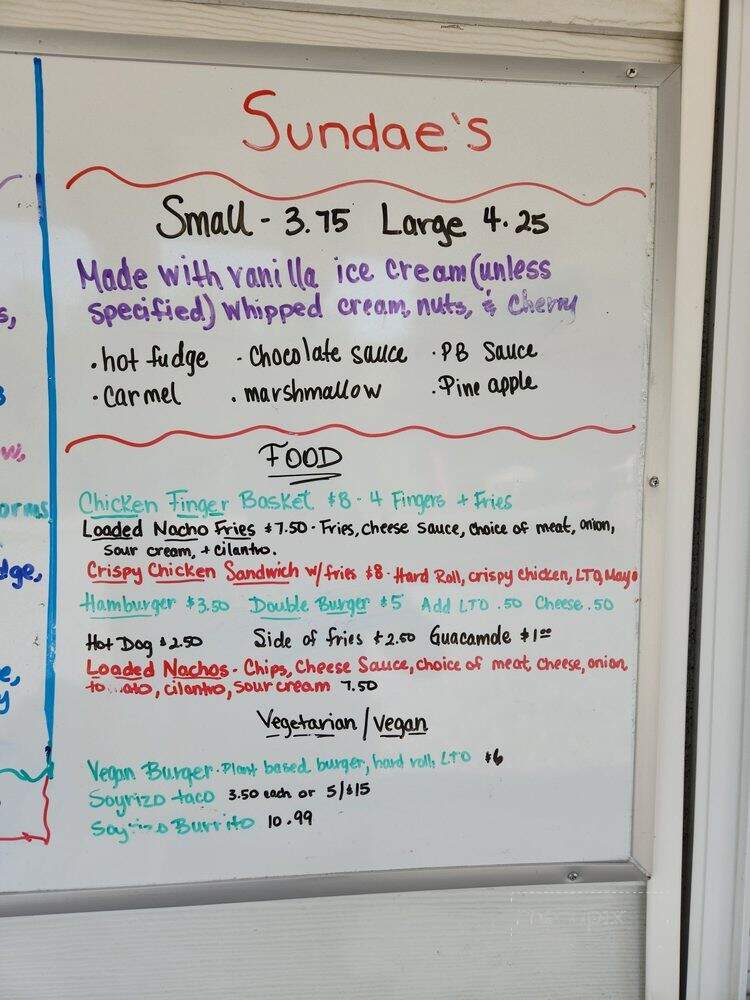 Sundae's
Small - 3.75 Large 4.25
Made with vanilla ice cream (unless
specified) Whipped cream, nuts, & Cherry
• hot fudge • Chocolate sauce • PB Sauce
• Carmel • marshmallow • Pine apple
FOOD
Chicken Finger Basket $8 - 4 Fingers + Fries
Loaded Nacho Fries $7.50 - Fries, cheese sauce, choice of meat, onion,
sour cream, + cilantro.
Crispy Chicken Sandwich w/fries $8 - Hard Roll, crispy chicken, LTO, Mayo
Hamburger $3.50 Double Burger $5 Add LTO .50 Cheese .50
Hot Dog $2.50 Side of fries $2.50 Guacamole $1.00
Loaded Nachos - Chips, Cheese Sauce, choice of meat, cheese, onion
cilantro, sour cream 7.50
Vegetarian / Vegan
Vegan Burger - Plant based burger, hard roll, LTO $6
Soyrizo taco 3.50 each or 5/$15
Burrito 10.99